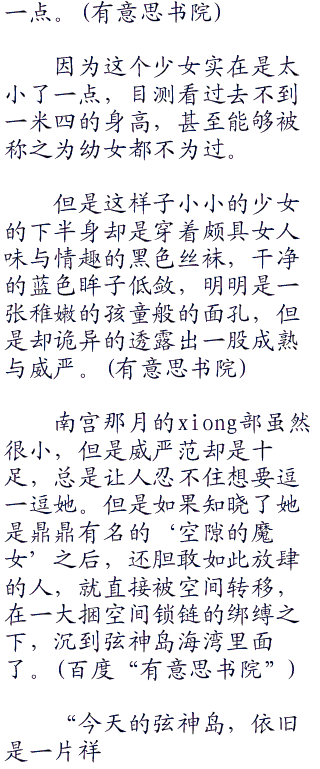 一点。(有意思书院)
因为这个少女实在是太
小了一点，目测看过去不到
一米四的身高，甚至能够被
称之为幼女都不为过。
但是这样子小小的少女
的下半身却是穿着颇具女人
味与情趣的黑色丝袜，干净
的蓝色眸子低敛，明明是一
张稚嫩的孩童般的面孔，但
是却诡异的透露出一股成熟
与威严。(有意思书院)
南宫那月的xiong部虽然
很小，但是威严范却是十
足，总是让人忍不住想要逗
一逗她。但是如果知晓了她
是鼎鼎有名的‘空隙的魔
女’之后，还胆敢如此放肆
的人，就直接被空间转移，
在一大捆空间锁链的绑缚之
下，沉到弦神岛海湾里面
了。(百度“有意思书院”)
“今天的弦神岛，依旧
是一片祥